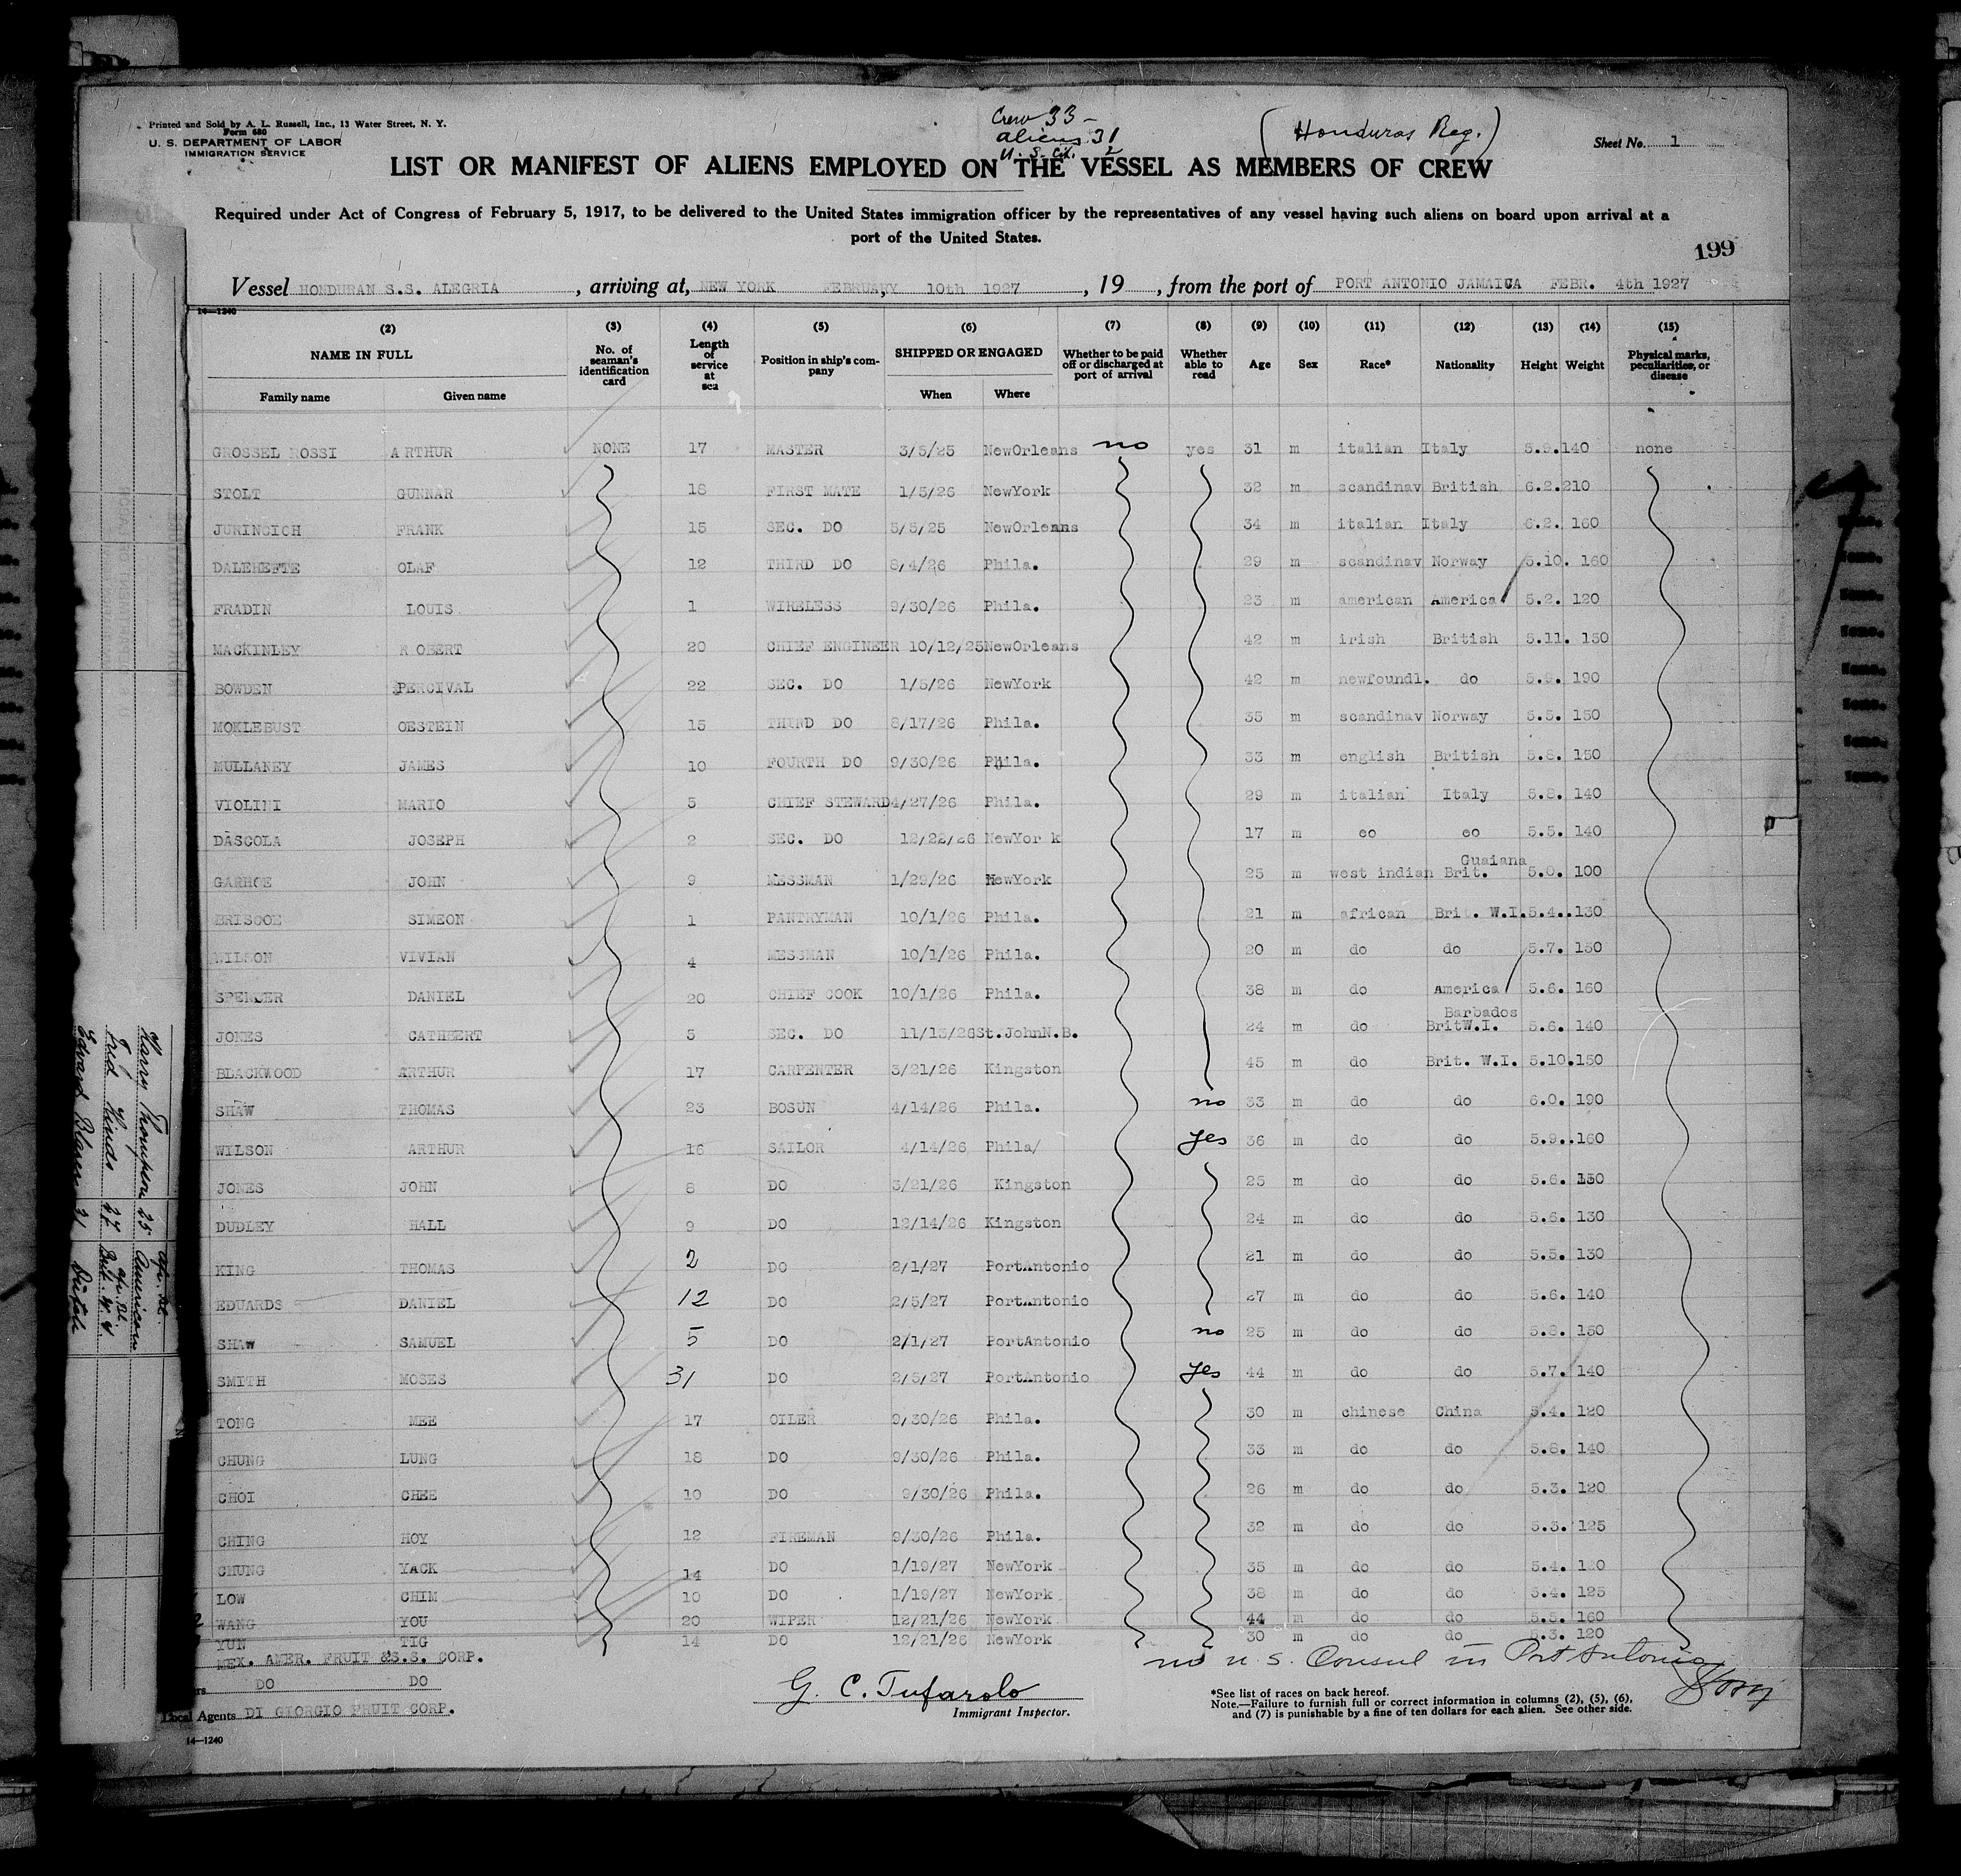 Printed and Sold by A. L. Russell, Inc., 13 Water Street, N. Y.
Form 680
U. S. DEPARTMENT OF LABOR
IMMIGRATION SERVICE
Crew 33 -
aliens 31
U. S. Cit. 2
(Honduras Reg.)
Sheet No. 1
LIST OR MANIFEST OF ALIENS EMPLOYED ON THE VESSEL AS MEMBERS OF CREW
Required under Act of Congress of February 5, 1917, to be delivered to the United States immigration officer by the representatives of any vessel having such aliens on board upon arrival at a
port of the United States.
199
Vessel HONDURAN S.S. ALEGRIA, arriving at, NEW YORK FEBRUARY 10th 1927, 19, from the port of PORT ANTONIO JAMAICA FEBR. 4th 1927
14—1240
(2) (3) (4) (5) (6) (7) (8) (9) (10) (11) (12) (13) (14) (15)
NAME IN FULL No. of seaman's identification card Length of service at sea Position in ship's company SHIPPED OR ENGAGED Whether to be paid off or discharged at port of arrival Whether able to read Age Sex Race* Nationality Height Weight Physical marks, peculiarities, or disease
Family name Given name When Where
GROSSEL ROSSI ARTHUR NONE 17 MASTER 3/5/25 NewOrleans no yes 31 m italian Italy 5.9.140 none
STOLT GUNNAR 16 FIRST MATE 1/5/26 NewYork 32 m scandinav British 6.2.210
JURINCICH FRANK 15 SEC. DO 5/5/25 NewOrleans 34 m italian Italy 6.2. 160
DALEHEFTE OLAF 12 THIRD DO 8/4/26 Phila. 29 m scandinav Norway 5.10. 160
FRADIN LOUIS 1 WIRELESS 9/30/26 Phila. 23 m american America 5.2. 120
MACKINLEY R OBERT 20 CHIEF ENGINEER 10/12/25NewOrleans 42 m irish British 5.11. 130
BOWDEN PERCIVAL 22 SEC. DO 1/5/26 NewYork 42 m newfoundl. do 5.9. 190
MOKLEBUST OESTEIN 15 THIRD DO 8/17/26 Phila. 35 m scandinav Norway 5.5. 150
MULLANEY JAMES 10 FOURTH DO 9/30/26 Phila. 33 m english British 5.8. 150
VIOLINI MARIO 5 CHIEF STEWARD4/27/26 Phila. 29 m italian Italy 5.8. 140
DASCOLA JOSEPH 2 SEC. DO 12/22/26 NewYor k 17 m eo eo 5.5. 140
GARHOE JOHN 9 MESSMAN 1/29/26 NewYork 25 m west indian Guaiana Brit. 5.0. 100
BRISCOE SIMEON 1 PANTRYMAN 10/1/26 Phila. 21 m african Brit. W.I.5.4..130
WILSON VIVIAN 4 MESSMAN 10/1/26 Phila. 20 m do do 5.7. 150
SPENCER DANIEL 20 CHIEF COOK 10/1/26 Phila. 38 m do America 5.6. 160
JONES CATHBERT 5 SEC. DO 11/13/26St.JohnN.B. 24 m do Barbados BritW.I. 5.6. 140
BLACKWOOD ARTHUR 17 CARPENTER 3/21/26 Kingston 45 m do Brit. W.I. 5.10.150
SHAW THOMAS 23 BOSUN 4/14/26 Phila. no 33 m do do 6.0. 190
WILSON ARTHUR 16 SAILOR 4/14/26 Phila/ yes 36 m do do 5.9..160
JONES JOHN 8 DO 3/21/26 Kingston 25 m do do 5.6.
DUDLEY HALL 9 DO 12/14/26 Kingston 24 m do do 5.6. 130
KING THOMAS 2 DO 2/1/27 PortAntonio 21 m do do 5.5. 130
EDUARDS DANIEL 12 DO 2/5/27 PortAntonio 27 m do do 5.6. 140
SHAW SAMUEL 5 DO 2/1/27 PortAntonio no 25 m do do 5.8. 150
SMITH MOSES 31 DO 2/5/27 PortAntonio yes 44 m do do 5.7. 140
TONG MEE 17 OILER 9/30/26 Phila. 30 m chinese China 5.4. 120
CHUNG LUNG 18 DO 9/30/26 Phila. 33 m do do 5.8. 140
CHOI CHEE 10 DO 9/30/26 Phila. 26 m do do 5.3. 120
CHING HOY 12 FIREMAN 9/30/26 Phila. 32 m do do 5.3. 125
CHUNG YACK 14 DO 1/19/27 NewYork 35 m do do 5.4. 120
LOW CHIM 10 DO 1/19/27 NewYork 38 m do do 5.4. 125
WANG YOU 20 WIPER 12/21/26 NewYork 44 m do do 5.5. 160
YUN TIG 14 DO 12/21/26 NewYork 30 m do do 5.3. 120
MEX. AMER. FRUIT &S.S. CORP.
DO DO
Local Agents DI GIORGIO FRUIT CORP.
14—1240
G. C. Tufarolo
Immigrant Inspector.
no U.S. Consul in Port Antonio
*See list of races on back hereof.
Note.—Failure to furnish full or correct information in columns (2), (5), (6),
and (7) is punishable by a fine of ten dollars for each alien. See other side.
Harry Thompson 25 afr. bl. American
Fred Hinds 27 afr. bl. Brit. W I
Edward Blaren 31 Dutch